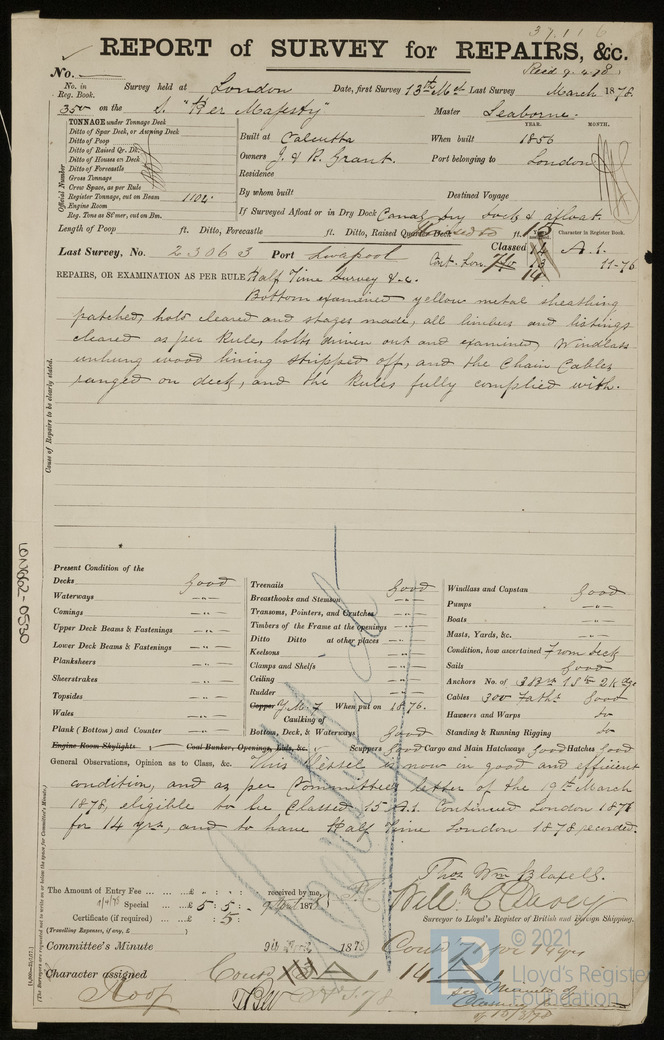 37116
REPORT of SURVEY for REPAIRS, &c.
No. Recd 9.4.78
No. in Reg. Book. Survey held at London Date, first Survey 13th Mch Last Survey March 1878
350 on the S. "Her Majesty" Master Seaborne.
TONNAGE under Tonnage Deck
Ditto of Spar Deck, or Awning Deck
Ditto of Poop
Ditto of Raised Qr. Dk.
Ditto of Houses on Deck
Ditto of Forecastle
Gross Tonnage
Crew Space, as per Rule
Register Tonnage, cut on Beam 1102.
Engine Room
Reg. Tons as St'mer, cut on Bm.
Official Number
YEAR. MONTH.
Built at Calcutta When built 1856
Owners J. & R. Grant. Port belonging to London
Residence
By whom built Destined Voyage
If Surveyed Afloat or in Dry Dock Canal dry dock & afloat.
Length of Poop ft. Ditto, Forecastle ft. Ditto, Raised Quarter Deck ft. Character in Register Book.
Last Survey, No. 23063 Port Liverpool Classed A.1.
Cont. Lon. 11-76
14
REPAIRS, OR EXAMINATION AS PER RULE Half Time Survey &c.
Bottom examined yellow metal sheathing
patched, hold cleared and stages made, all limbers and listings
cleared as per Rule, bolts driven out and examined, Windlass
unhung wood lining stripped off, and the Chain Cables
ranged on deck, and the Rules fully complied with.
Cause of Repairs to be clearly stated.
LON862-0530
Present Condition of the
Decks Good
Waterways -"-
Comings -"-
Upper Deck Beams & Fastenings -"-
Lower Deck Beams & Fastenings -"-
Planksheers -"-
Sheerstrakes -"-
Topsides -"-
Wales -"-
Plank (Bottom) and Counter -"-
Treenails Good
Breasthooks and Stemson -"-
Transoms, Pointers, and Crutches -"-
Timbers of the Frame at the openings -"-
Ditto Ditto at other places -"-
Keelsons -"-
Clamps and Shelfs -"-
Ceiling -"-
Rudder -"-
Copper Y.M. When put on 1876.
Caulking of
Bottom, Deck, & Waterways Good
Windlass and Capstan Good
Pumps -"-
Boats -"-
Masts, Yards, &c. -"-
Condition, how ascertained From deck
Sails Good
Anchors No. of 3 B
Cables 300 Faths Good
Hawsers and Warps Do
Standing & Running Rigging Do
Engine Room Skylights Coal Bunker, Openings, Lids, &c. Scuppers Good Cargo and Main Hatchways Good Hatches Good
General Observations, Opinion as to Class, &c. This Vessel is now in good and efficient
condition, and as per Committees letter of the 19th March
1878, eligible to be Classed 15 A.1. Continued London 1876
for 14 yrs, and to have Half Time London 1878 recorded.
Thos Wm
The Amount of Entry Fee £ : : received by me,
1/4/78 Special £ 5 : 5 : - 9 April 1878
Certificate (if required) £ : 5 :
(Travelling Expenses, if any, £ )
Surveyor to Lloyd's Register of British and Foreign Shipping.
Committee's Minute 9th 1878 Contd for 14 yrs
Character assigned Contd 14 A 1
© 2021
Lloyd's Register
Foundation